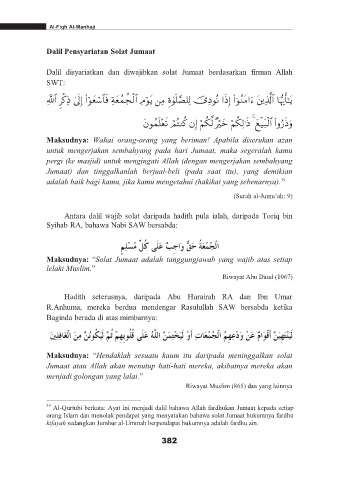 Al-Fiqh Al-Manhaji
Dalil Pensyariatan Solat Jumaat
Dalil disyariatkan dan diwajibkan solat Jumaat berdasarkan firman Allah
SWT:
يَـٰٓأَيُّهَا ٱلَّذِينَ ءَامَنُوٓا۟ إِذَا نُودِىَ لِلصَّلَوٰةِ مِن يَوْمِ ٱلْجُمُعَةِ فَٱسْعَوْا۟ إِلَىٰ ذِكْرِ ٱللَّهِ
وَذَرُوا۟ ٱلْبَيْعَ ۚ ذَٰلِكُمْ خَيْرٌ لَّكُمْ إِن كُنتُمْ تَعْلَمُونَ
Maksudnya: Wahai orang-orang yang beriman! Apabila diserukan azan
untuk mengerjakan sembahyang pada hari Jumaat, maka segeralah kamu
pergi (ke masjid) untuk mengingati Allah (dengan mengerjakan sembahyang
Jumaat) dan tinggalkanlah berjual-beli (pada saat itu), yang demikian
adalah baik bagi kamu, jika kamu mengetahui (hakikat yang sebenarnya).
(Surah al-Jumu'ah: 9)
Antara dalil wajib solat daripada hadith pula ialah, daripada Toriq bin
Syihab RA, bahawa Nabi SAW bersabda:
الْجُمُعَةُ حَقٌّ وَاجِبٌ عَلَى كُلِّ مُسْلِمٍ
Maksudnya: "Solat Jumaat adalah tanggungjawab yang wajib atas setiap
lelaki Muslim."
Riwayat Abu Daud (1067)
Hadith seterusnya, daripada Abu Hurairah RA dan Ibn Umar
R.Anhuma, mereka berdua mendengar Rasulullah SAW bersabda ketika
Baginda berada di atas mimbarnya:
لَيَنْتَهِيَنَّ أَقْوَامٌ عَنْ وَدْعِهِمُ الْجُمُعَاتِ أَوْ لَيَخْتِمَنَّ اللَّهُ عَلَى قُلُوبِهِمْ ثُمَّ لَيَكُونُنَّ مِنَ الْغَافِلِينَ
Maksudnya: "Hendaklah sesuatu kaum itu daripada meninggalkan solat
Jumaat atau Allah akan menutup hati-hati mereka, akibatnya mereka akan
menjadi golongan yang lalai."
Riwayat Muslim (865) dan yang lainnya
Al-Qurtubi berkata: Ayat ini menjadi dalil bahawa Allah fardhukan Jumaat kepada setiap
orang Islam dan menolak pendapat yang menyatakan bahawa solat Jumaat hukumnya fardhu
kifayah sedangkan Jumhur al-Ummah berpendapat hukumnya adalah fardhu ain.
382